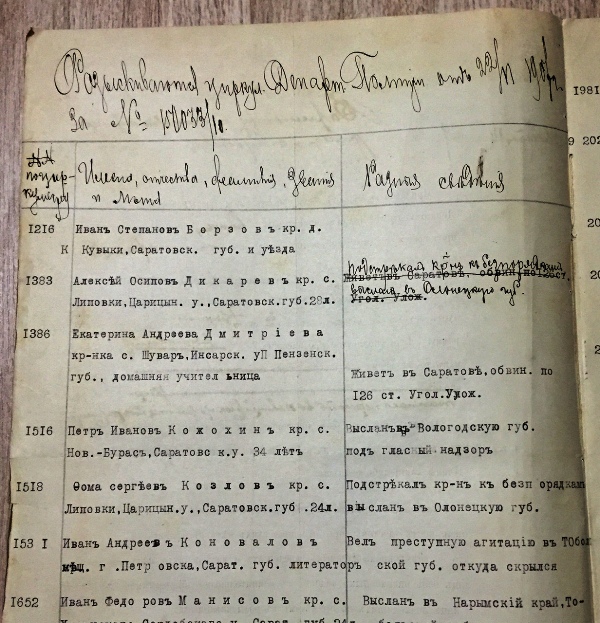 Разыскиваются циркул. Департ. Полиціи отъ 22/VI 190
За № 150033/10.
1981
№№
по цир-
куляру
Имена, отчества, фамилія, званія
и мѣста
Разныя свѣдѣнія
I2I6
Иванъ Степановъ Борзовъ кр. д.
К Кувыки,Саратовск. губ. и уѣзда
I383
Алексѣй Осиповъ Дикаревъ кр. с.
Липовки,Царицын. у.,Саратовск.губ.28л.
подстрекалъ кр-нъ къ безпорядкамъ
Животъ въ Саратовѣ, обвин. по I26ст.
высланъ въ Олонецкую губ.
Угол. Улож.
I386
Екатерина Андреева Дмитріева
кр-нка с. Шуваръ,Инсарск. уП Пензенск.
губ., домашняя учител ьница
Живетъ въ Саратовѣ,обвин. по
I26 ст. Угол.Улож.
I5I6
Петръ Ивановъ Кожохинъ кр. с.
Нов.-Бурасъ,Саратовс к.у. 34 лѣтъ
Высланъвъ Вологодскую губ.
подъ гласный надзоръ
I5I8
Ѳома сергѣевъ Козловъ кр. с.
Липовки,Царицын.у.,Саратовск.губ .24л.
Подстрѣкалъ кр-нъ къ безп орядкамъ
высланъ въ Олонецкую губ.
I53 I
Иванъ Андреевъ Коноваловъ
мѣщ. г .Петр овска,Сарат. губ. литераторъ
Велъ преступную агитацію въ ТОбол
ской губ. откуда скрылся
I652
Иванъ Федо ровъ Манисовъ кр. с.
Высланъ въ Нарымскій край,То-